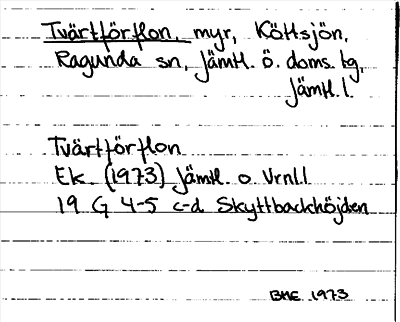 Tvärtförflon, myr, Köttsjön,
Ragunda sn, Jämtl. ö. doms. tg,
Jämtl. l.
Tvärtförflon
Ek. (1973) Jämtl. o Vrnl. l
19 G 4-5 c-d Skyttbackhöjden
BME 1973